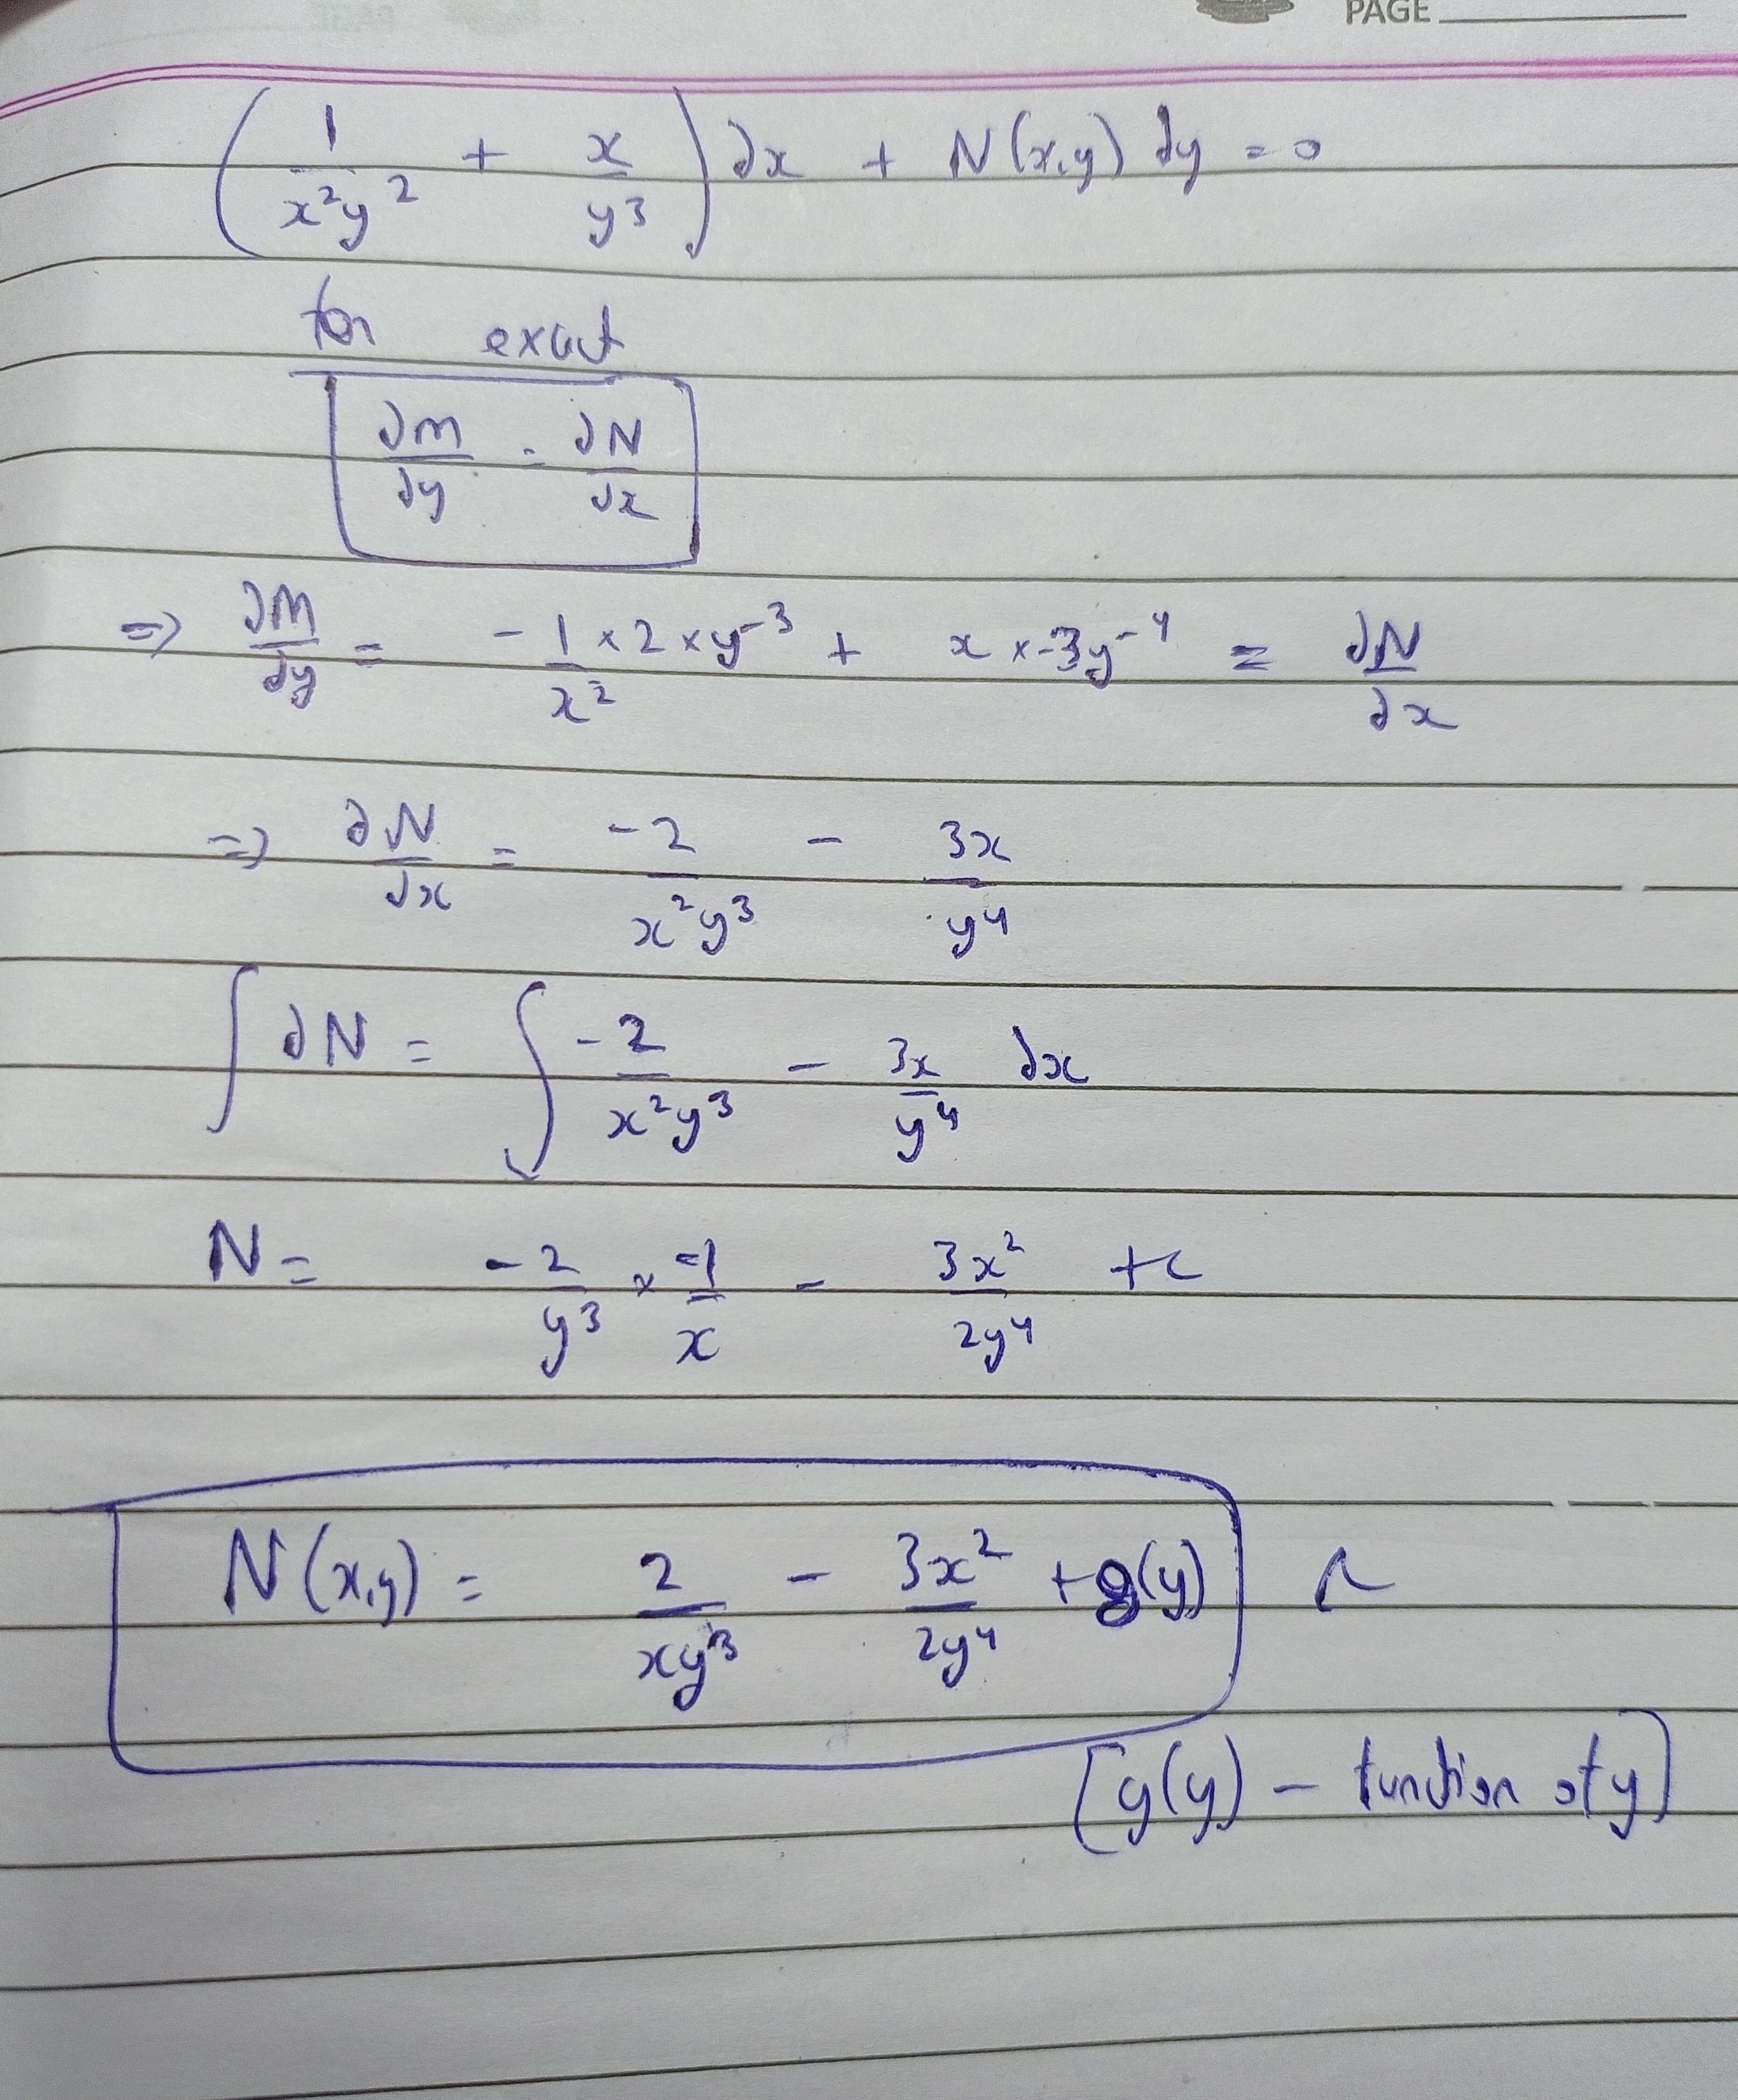 PAGE
(1/x²y² + x/y³) dx + N(x,y) dy = 0
for exact
∂M/∂y = ∂N/∂x
⇒ ∂M/∂y = -1/x² × 2 × y⁻³ + x × -3y⁻⁴ = ∂N/∂x
⇒ ∂N/∂x = -2/x²y³ - 3x/y⁴
∫ ∂N = ∫ -2/x²y³ - 3x/y⁴ dx
N = -2/y³ × -1/x - 3x²/2y⁴ + c
N(x,y) = 2/xy³ - 3x²/2y⁴ + g(y)
[g(y) - function of y]